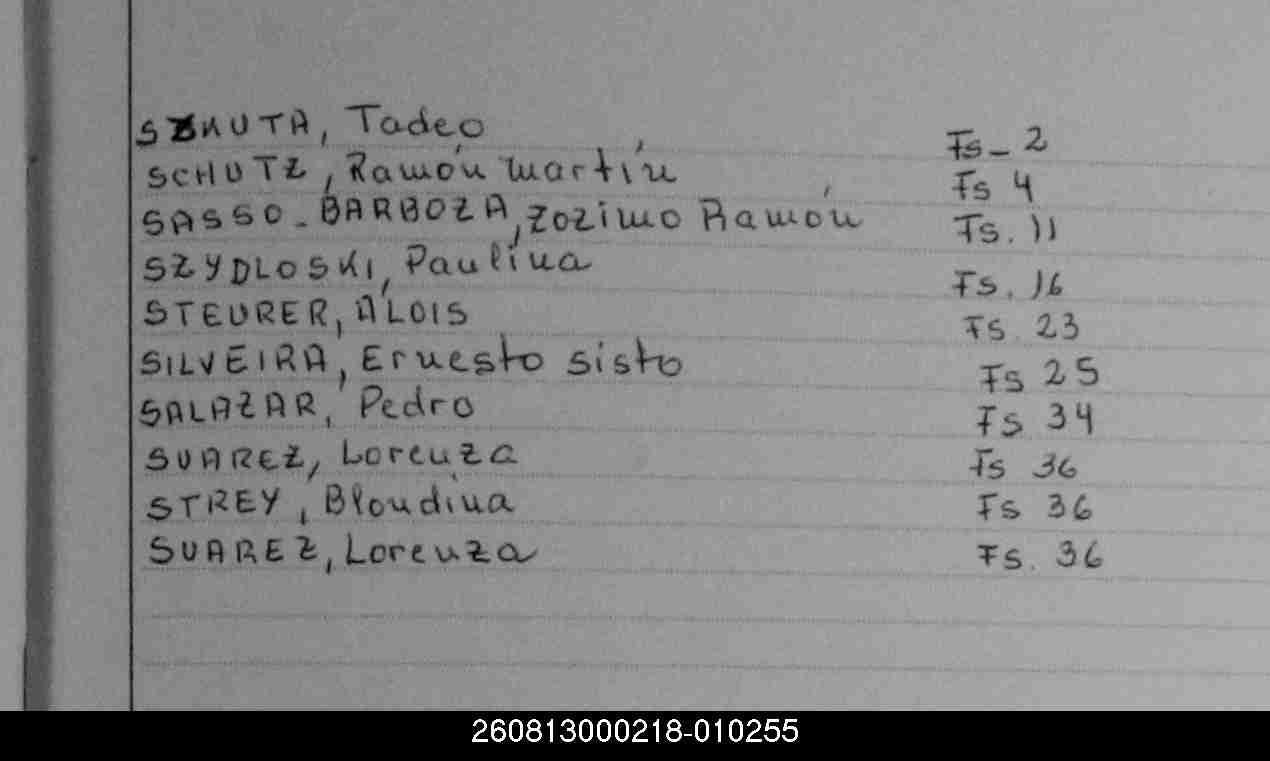 SZKUTA, Tadeo Fs_ 2
SCHUTZ, Ramón Martín Fs 4
SASSO-BARBOZA, Zozimo Ramón Fs. 11
SZYDLOSKI, Paulina Fs. 16
STEURER, ALOIS Fs. 23
SILVEIRA, Ernesto sisto Fs 25
SALAZAR, Pedro Fs 34
SUAREZ, Lorenza Fs 36
STREY, Blondina Fs 36
SUAREZ, Lorenza Fs. 36
260813000218-010255